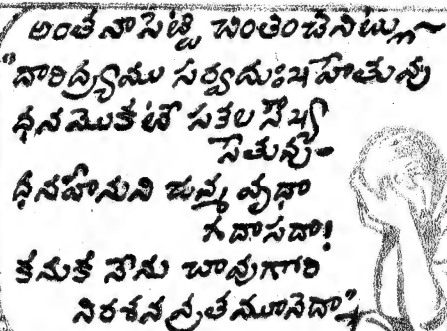 అంతే నా సెట్టి చింతించెనిట్లు~
"దారిద్ర్యము సర్వదుఃఖ హేతువు
ధన మొకటే సకల సౌఖ్య
సేతువు-
ధనహీనుని జన్మ వృధా
గదాసదా!
కనుక నేను చావుగోరి
నిరశన వ్రతమూనెదా"